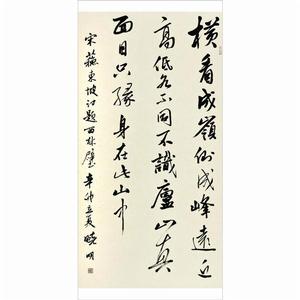 橫看成嶺側成峰遠近
高低各不同不識廬山真
面目只緣身在此山中
宋蘇東坡題西林壁辛卯立夏曉明